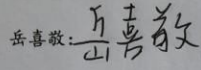 岳喜敬:岳喜敬